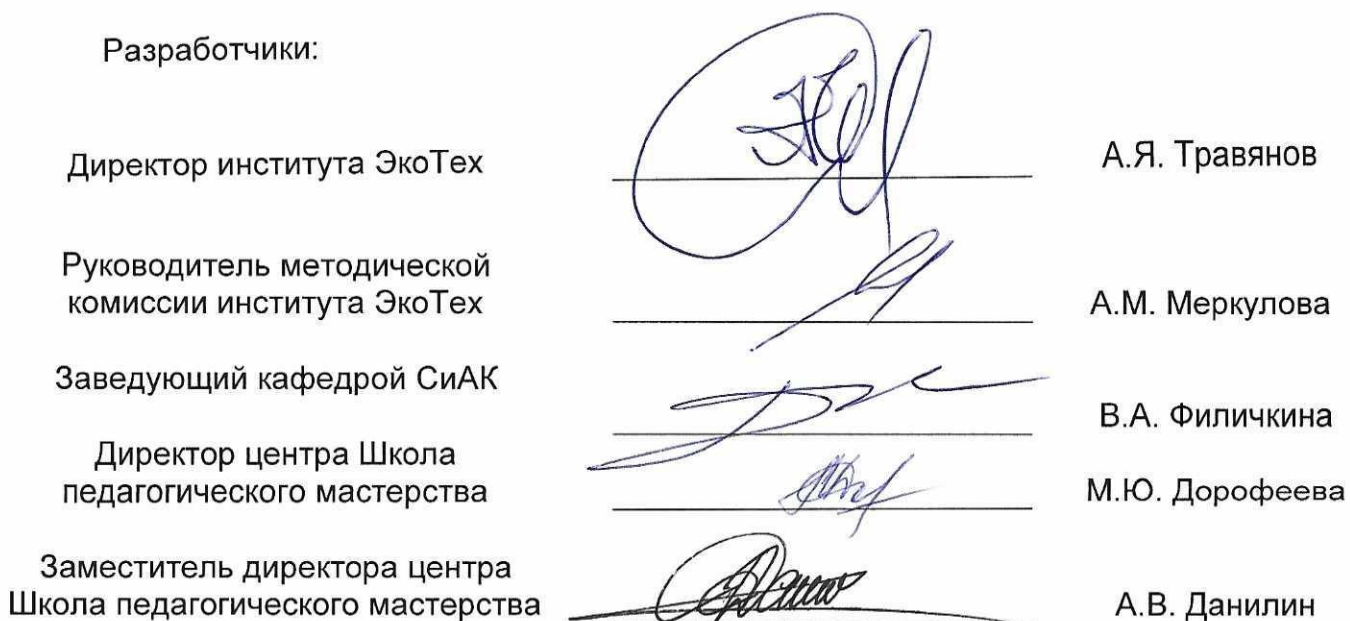 Разработчики:
Директор института ЭкоТех
А.Я. Травянов
Руководитель методической
комиссии института ЭкоТех
А.М. Меркулова
Заведующий кафедрой СиАК
В.А. Филичкина
Директор центра Школа
педагогического мастерства
М.Ю. Дорофеева
Заместитель директора центра
Школа педагогического мастерства
А.В. Данилин